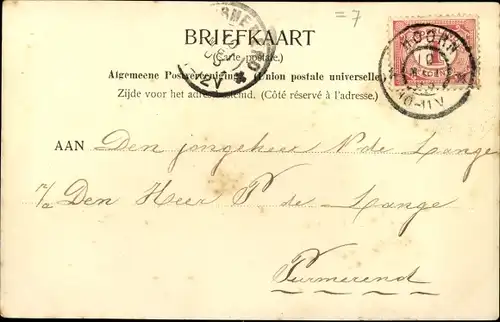 = 7
BRIEFKAART
(Carte postale.)
Algemeene Postvereeniging. Union postale universelle.
Zijde voor het adres bestemd. (Côté réservé à l'adresse.)
HOORN
1
AAN Den jongeheer P de Lange
p/a Den Heer P de Lange
Purmerend